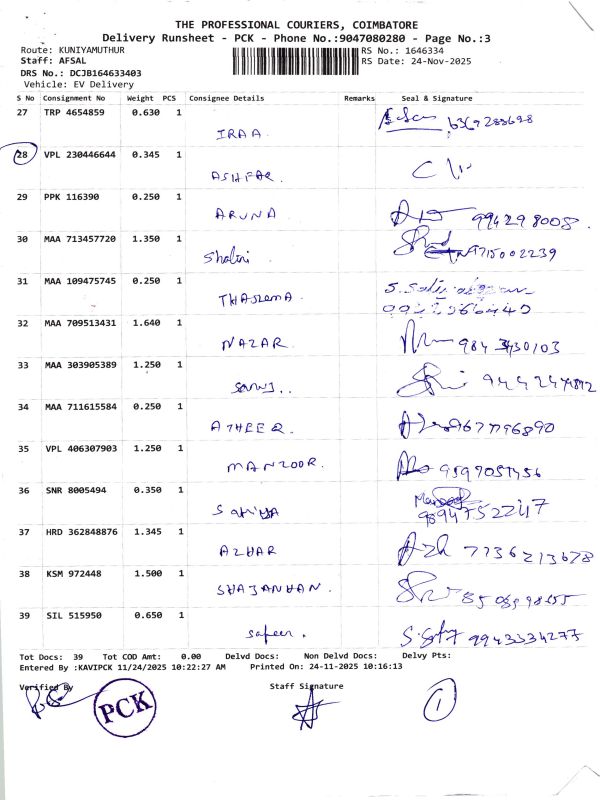 THE PROFESSIONAL COURIERS, COIMBATORE
Delivery Runsheet - PCK - Phone No.:9047080280 - Page No.:3
Route: KUNIYAMUTHUR RS No.: 1646334
Staff: AFSAL RS Date: 24-Nov-2025
DRS No.: DCJB164633403
Vehicle: EV Delivery
S No Consignment No Weight PCS Consignee Details Remarks Seal & Signature
27 TRP 4654859 0.630 1
IRAA.
28 VPL 230446644 0.345 1
ASHFAR.
29 PPK 116390 0.250 1
ARUNA 994298008.
30 MAA 713457720 1.350 1
Shalini 9715002239
31 MAA 109475745 0.250 1
THASLEMA.
32 MAA 709513431 1.640 1
NAZAR. 9843430103
33 MAA 303905389 1.250 1
34 MAA 711615584 0.250 1
ATHEEQ. 9677796890
35 VPL 406307903 1.250 1
MANZOOR.
36 SNR 8005494 0.350 1
37 HRD 362848876 1.345 1
AZHAR Azh 7736213678
38 KSM 972448 1.500 1
SHAJAHAN.
39 SIL 515950 0.650 1
safeer. 9943334277
Tot Docs: 39 Tot COD Amt: 0.00 Delvd Docs: Non Delvd Docs: Delvy Pts:
Entered By :KAVIPCK 11/24/2025 10:22:27 AM Printed On: 24-11-2025 10:16:13
Verified By Staff Signature
PCK
1